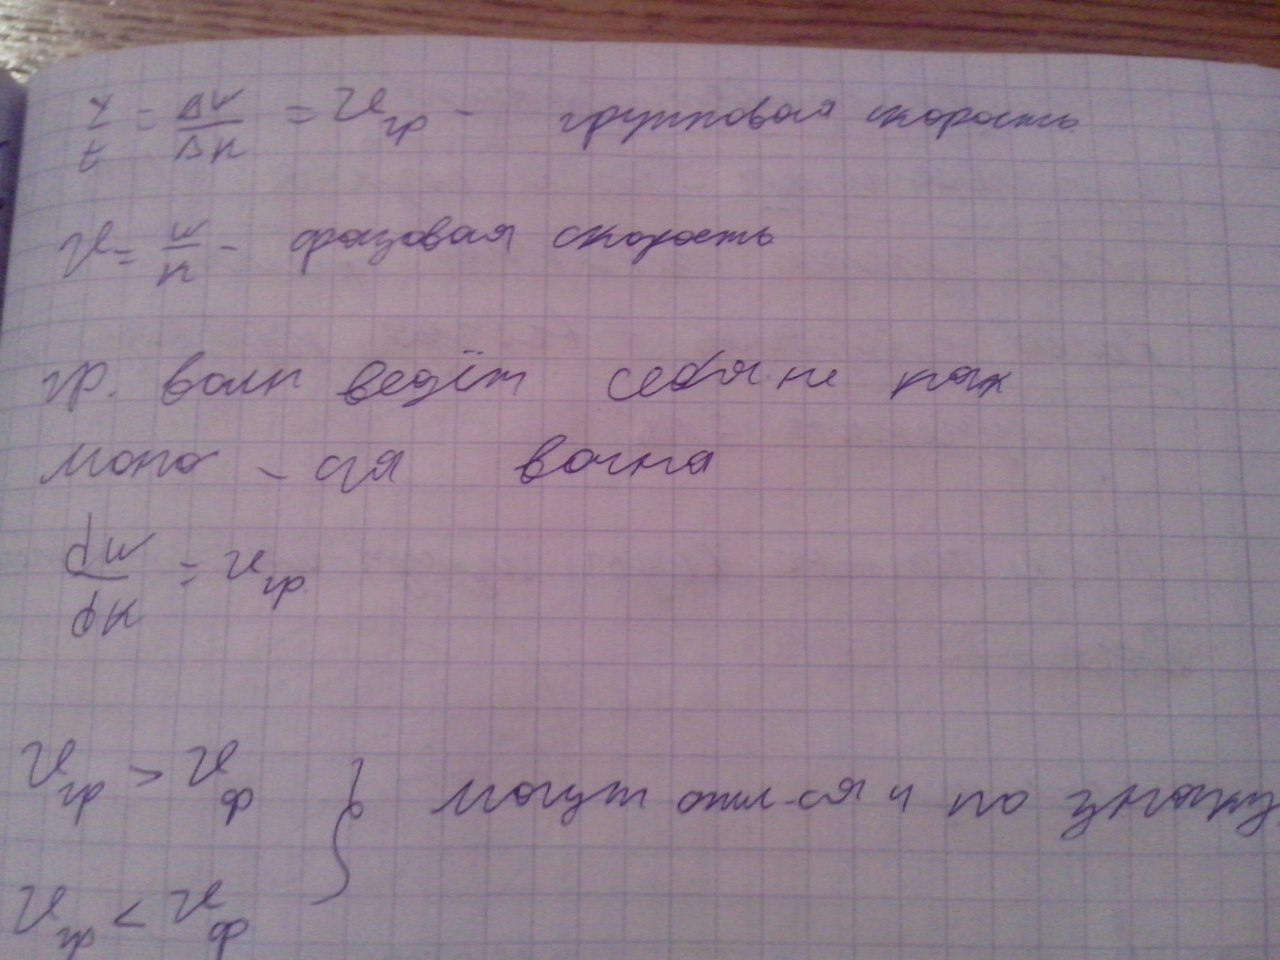 x/t = Δw/Δk = v гр - групповая скорость
v = w/k - фазовая скорость
гр. волн ведёт себя не как
моно - ая волна
dw/dk = v гр
v гр > v ф } могут отл-ся и по знаку
v гр < v ф